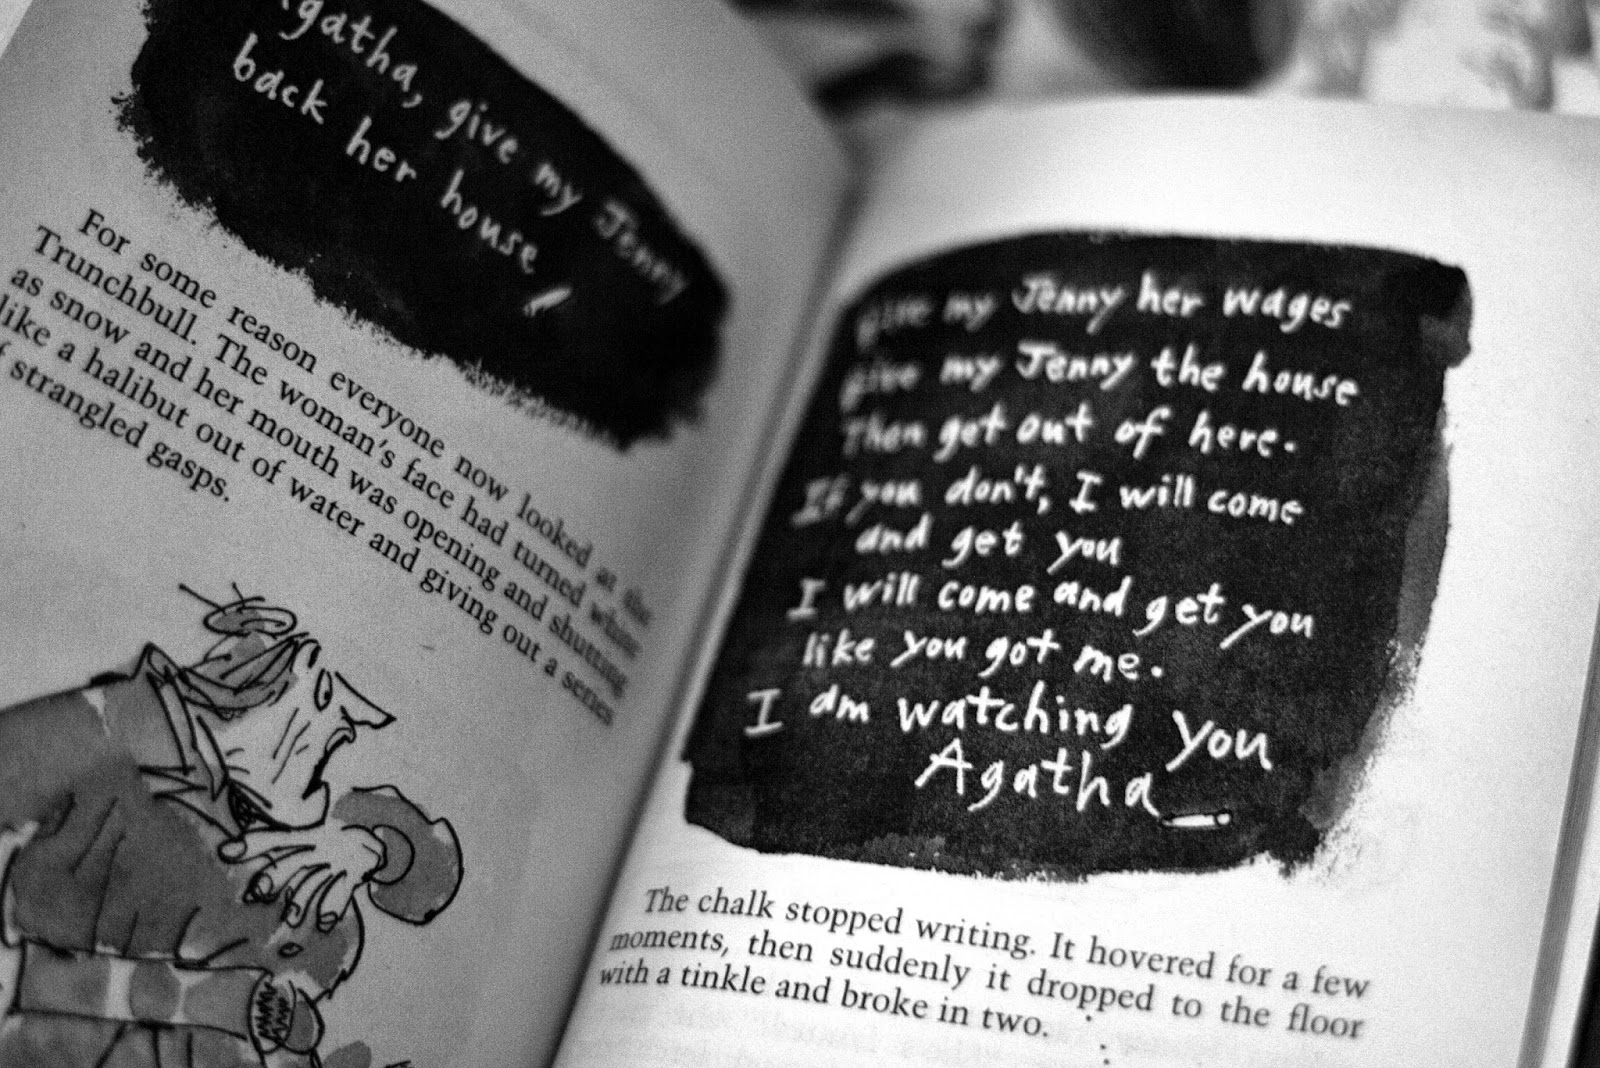 Agatha, give my Jenny
back her house!
For some reason everyone now looked at the
Trunchbull. The woman's face had turned white
as snow and her mouth was opening and shutting
like a halibut out of water and giving out a series
of strangled gasps.
give my Jenny her wages
give my Jenny the house
Then get out of here.
If you don't, I will come
and get you
I will come and get you
like you got me.
I am watching you
Agatha
The chalk stopped writing. It hovered for a few
moments, then suddenly it dropped to the floor
with a tinkle and broke in two.